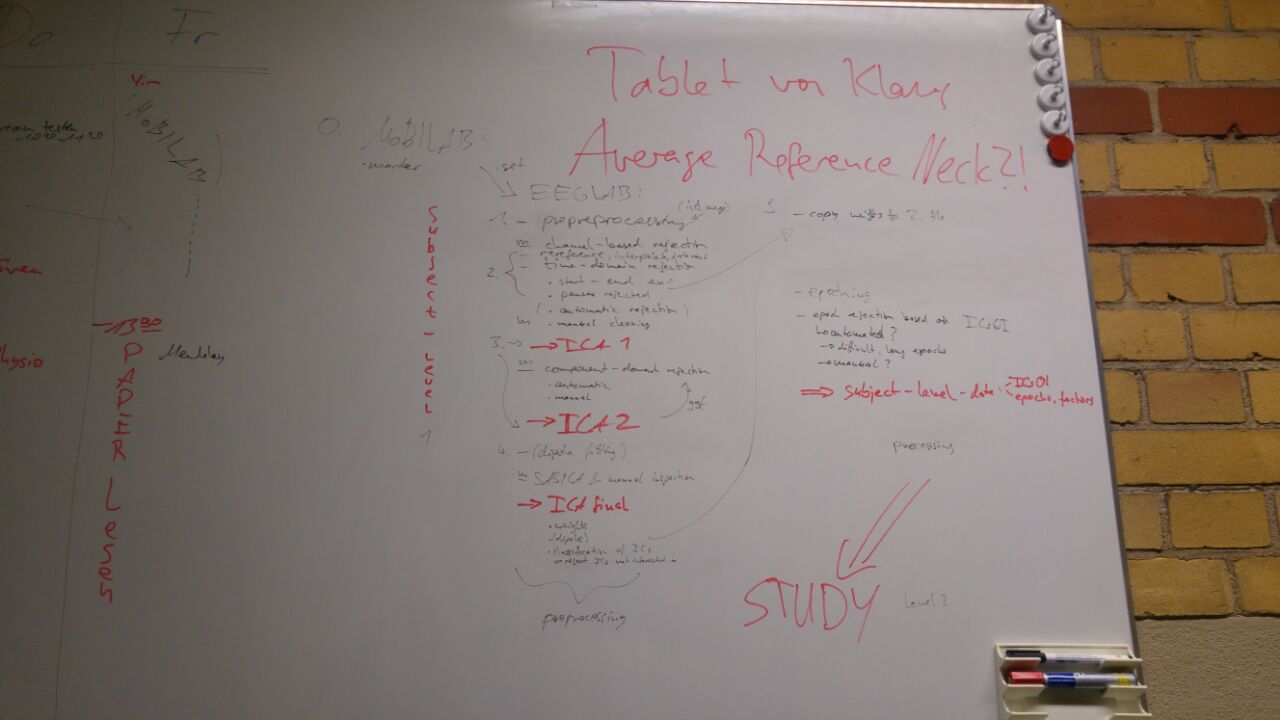 Do
Fr
Yin
(MOBILAB)
testen
10⁰⁰-11³⁰
-13⁰⁰
PAPER Lesen
Physio
Tablet von Klaus
Average Reference Neck?!
0.
MOBILAB:
· marker
.set
EEGLAB:
Subject-level 1
1. - prepreprocessing
m channel-based rejection
2.
- rereference, interpolate,
- time-domain rejection
· start-end
· pauses rejected
(· automatic rejection)
m · manual cleaning
3. → → ICA 1
m component-domain rejection
· automatic
· manual
ggf.
→ ICA 2
4. - (dipole fitting)
m SASICA for manual inspection
→ ICA final
· weights
· (dipole)
· classification of ICs
→ reject ICs not interested in
preprocessing
5. - copy weights to 2.
- epoching
- epoch rejection based on ICsOI
automated?
→ difficult, long epochs
→ manual?
⇒ subject-level-data:
ICsOI
epochs, factors
processing
STUDY
level 2